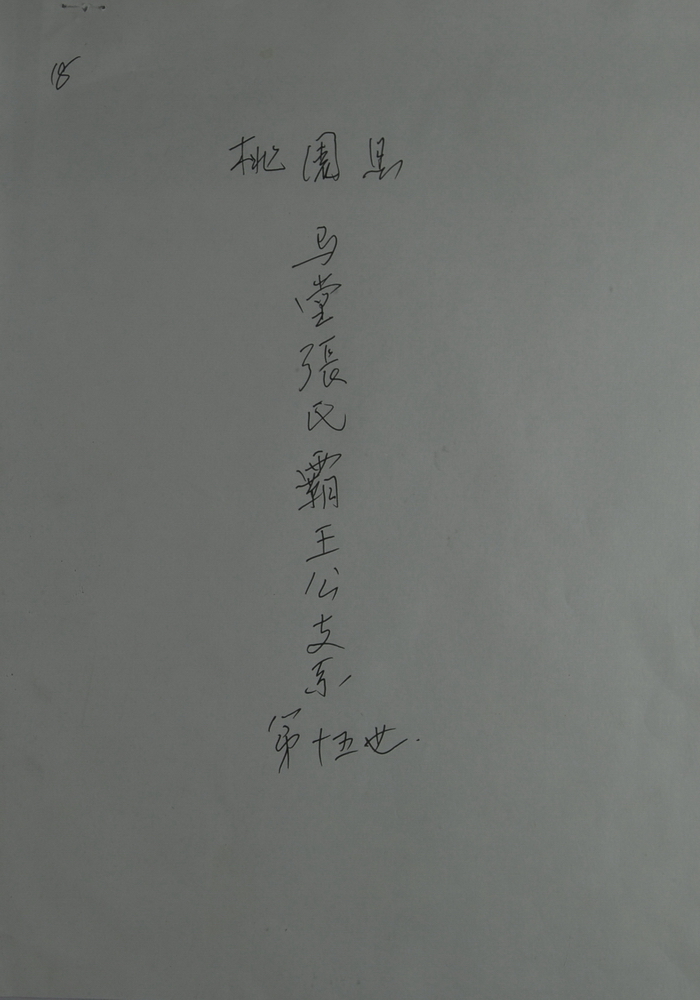 18
桃園县
马堂張氏霸王公支系
第十五世.